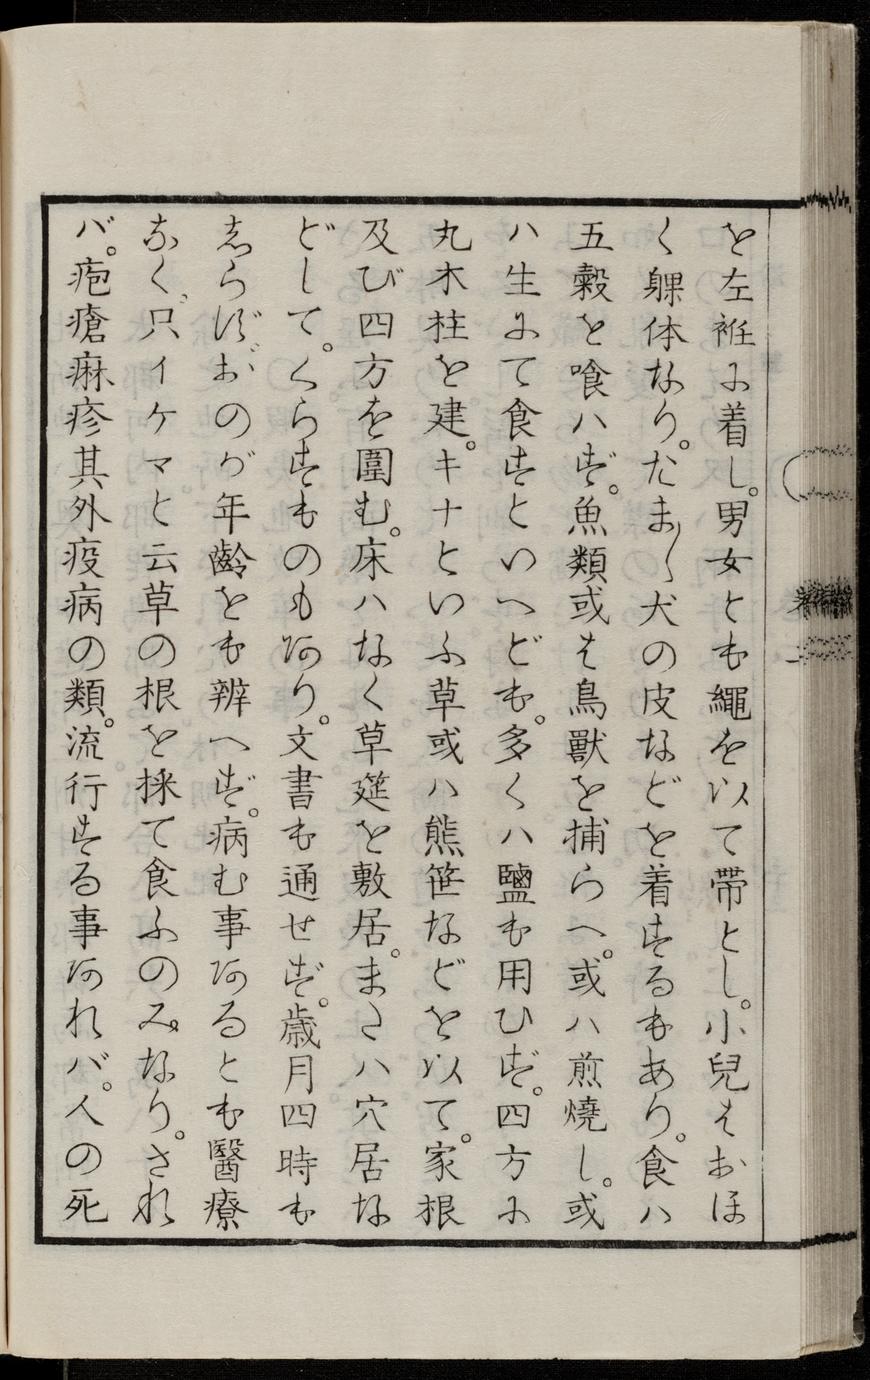 を左袵に着し。男女とも繩を以て帶とし。小兒はおほ
く躶体なり。たま〱犬の皮などを着するもあり。食ハ
五穀を喰ハず。魚類或は鳥獸を捕らへ。或ハ煎燒し。或
ハ生にて食すといへども。多くハ鹽も用ひず。四方に
丸木柱を建。キナといふ草或ハ熊笹などを以て。家根
及び四方を圍む。床ハなく草莚を敷居。またハ穴居な
どして。くらすものもあり。文書も通せず。歳月四時も
しらず。おのが年齡をも辨へず。病む事あるとも醫療
なく、只イケマと云草の根を採て食ふのみなり。され
バ。疱瘡痳疹其外疫病の類。流行する事あれバ。人の死